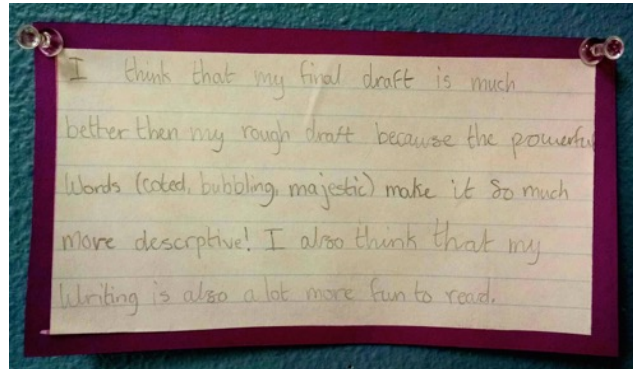 I think that my final draft is much
better then my rough draft because the powerful
words (coted, bubbling, majestic) make it so much
more descrptive! I also think that my
writing is also a lot more fun to read.